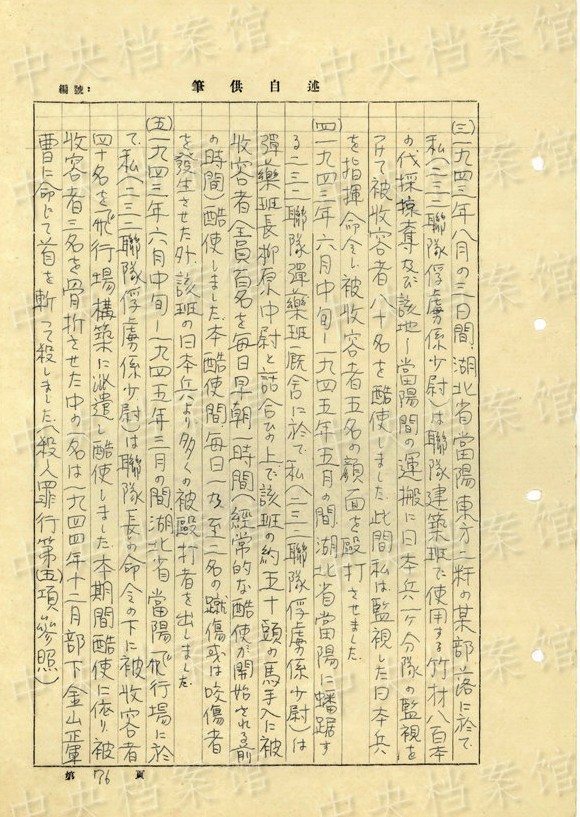 中央档案馆
編號：
述自供筆
(三)一九四三年八月の三日間、湖北省當陽東方二粁の某部落に於て
私(二三二聯隊俘虜係少尉)は聯隊建築班で使用する竹材八百本
の伐採掠奪及び該地—當陽間の運搬に日本兵一ケ分隊の監視を
つけて被收容者八十名を酷使しました。此間私は監視した日本兵
を指揮命令し被收容者五名の顏面を毆打させました。
(四)一九四三年六月中旬—一九四五年五月の間、湖北省當陽に蟠踞す
る二三二聯隊彈藥班厩舍に於て、私(二三二聯隊俘虜係少尉)は
彈藥班長柳原中尉と詰合ひの上で該班の約五十頭の馬手入に被
收容者全員百名を每日早朝一時間(經常的な酷使が開始される前
の時間)酷使しました。本酷使間每日一乃至二名の蹴傷或は咬傷者
を發生させた外、該班の日本兵より多くの被毆打者を出しました。
(五)一九四三年六月中旬—一九四五年三月の間、湖北省當陽飛行場に於
て、私(二三二聯隊俘虜係少尉)は聯隊長の命令の下に被收容者
四十名を飛行場構築に派遣し酷使しました。本期間酷使に依り、被
收容者三名を骨折させた中の一名は一九四四年十二月部下金山正軍
曹に命じて首を斬って殺しました。(殺人罪行第(五)項參照)
第 76 頁